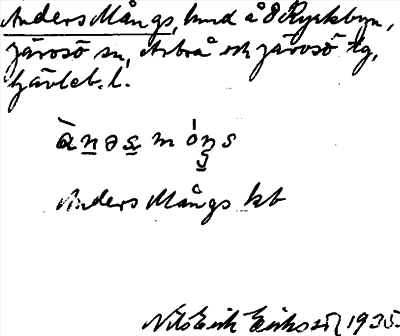 Anders Mångs, hmd å 8 Kyrkbyn,
Järvsö sn, Arbrå och Järvsö tg,
Gävleb. l.
ànəs móŋs
Anders Mångs kb
Nils Erik Eriksson 1935